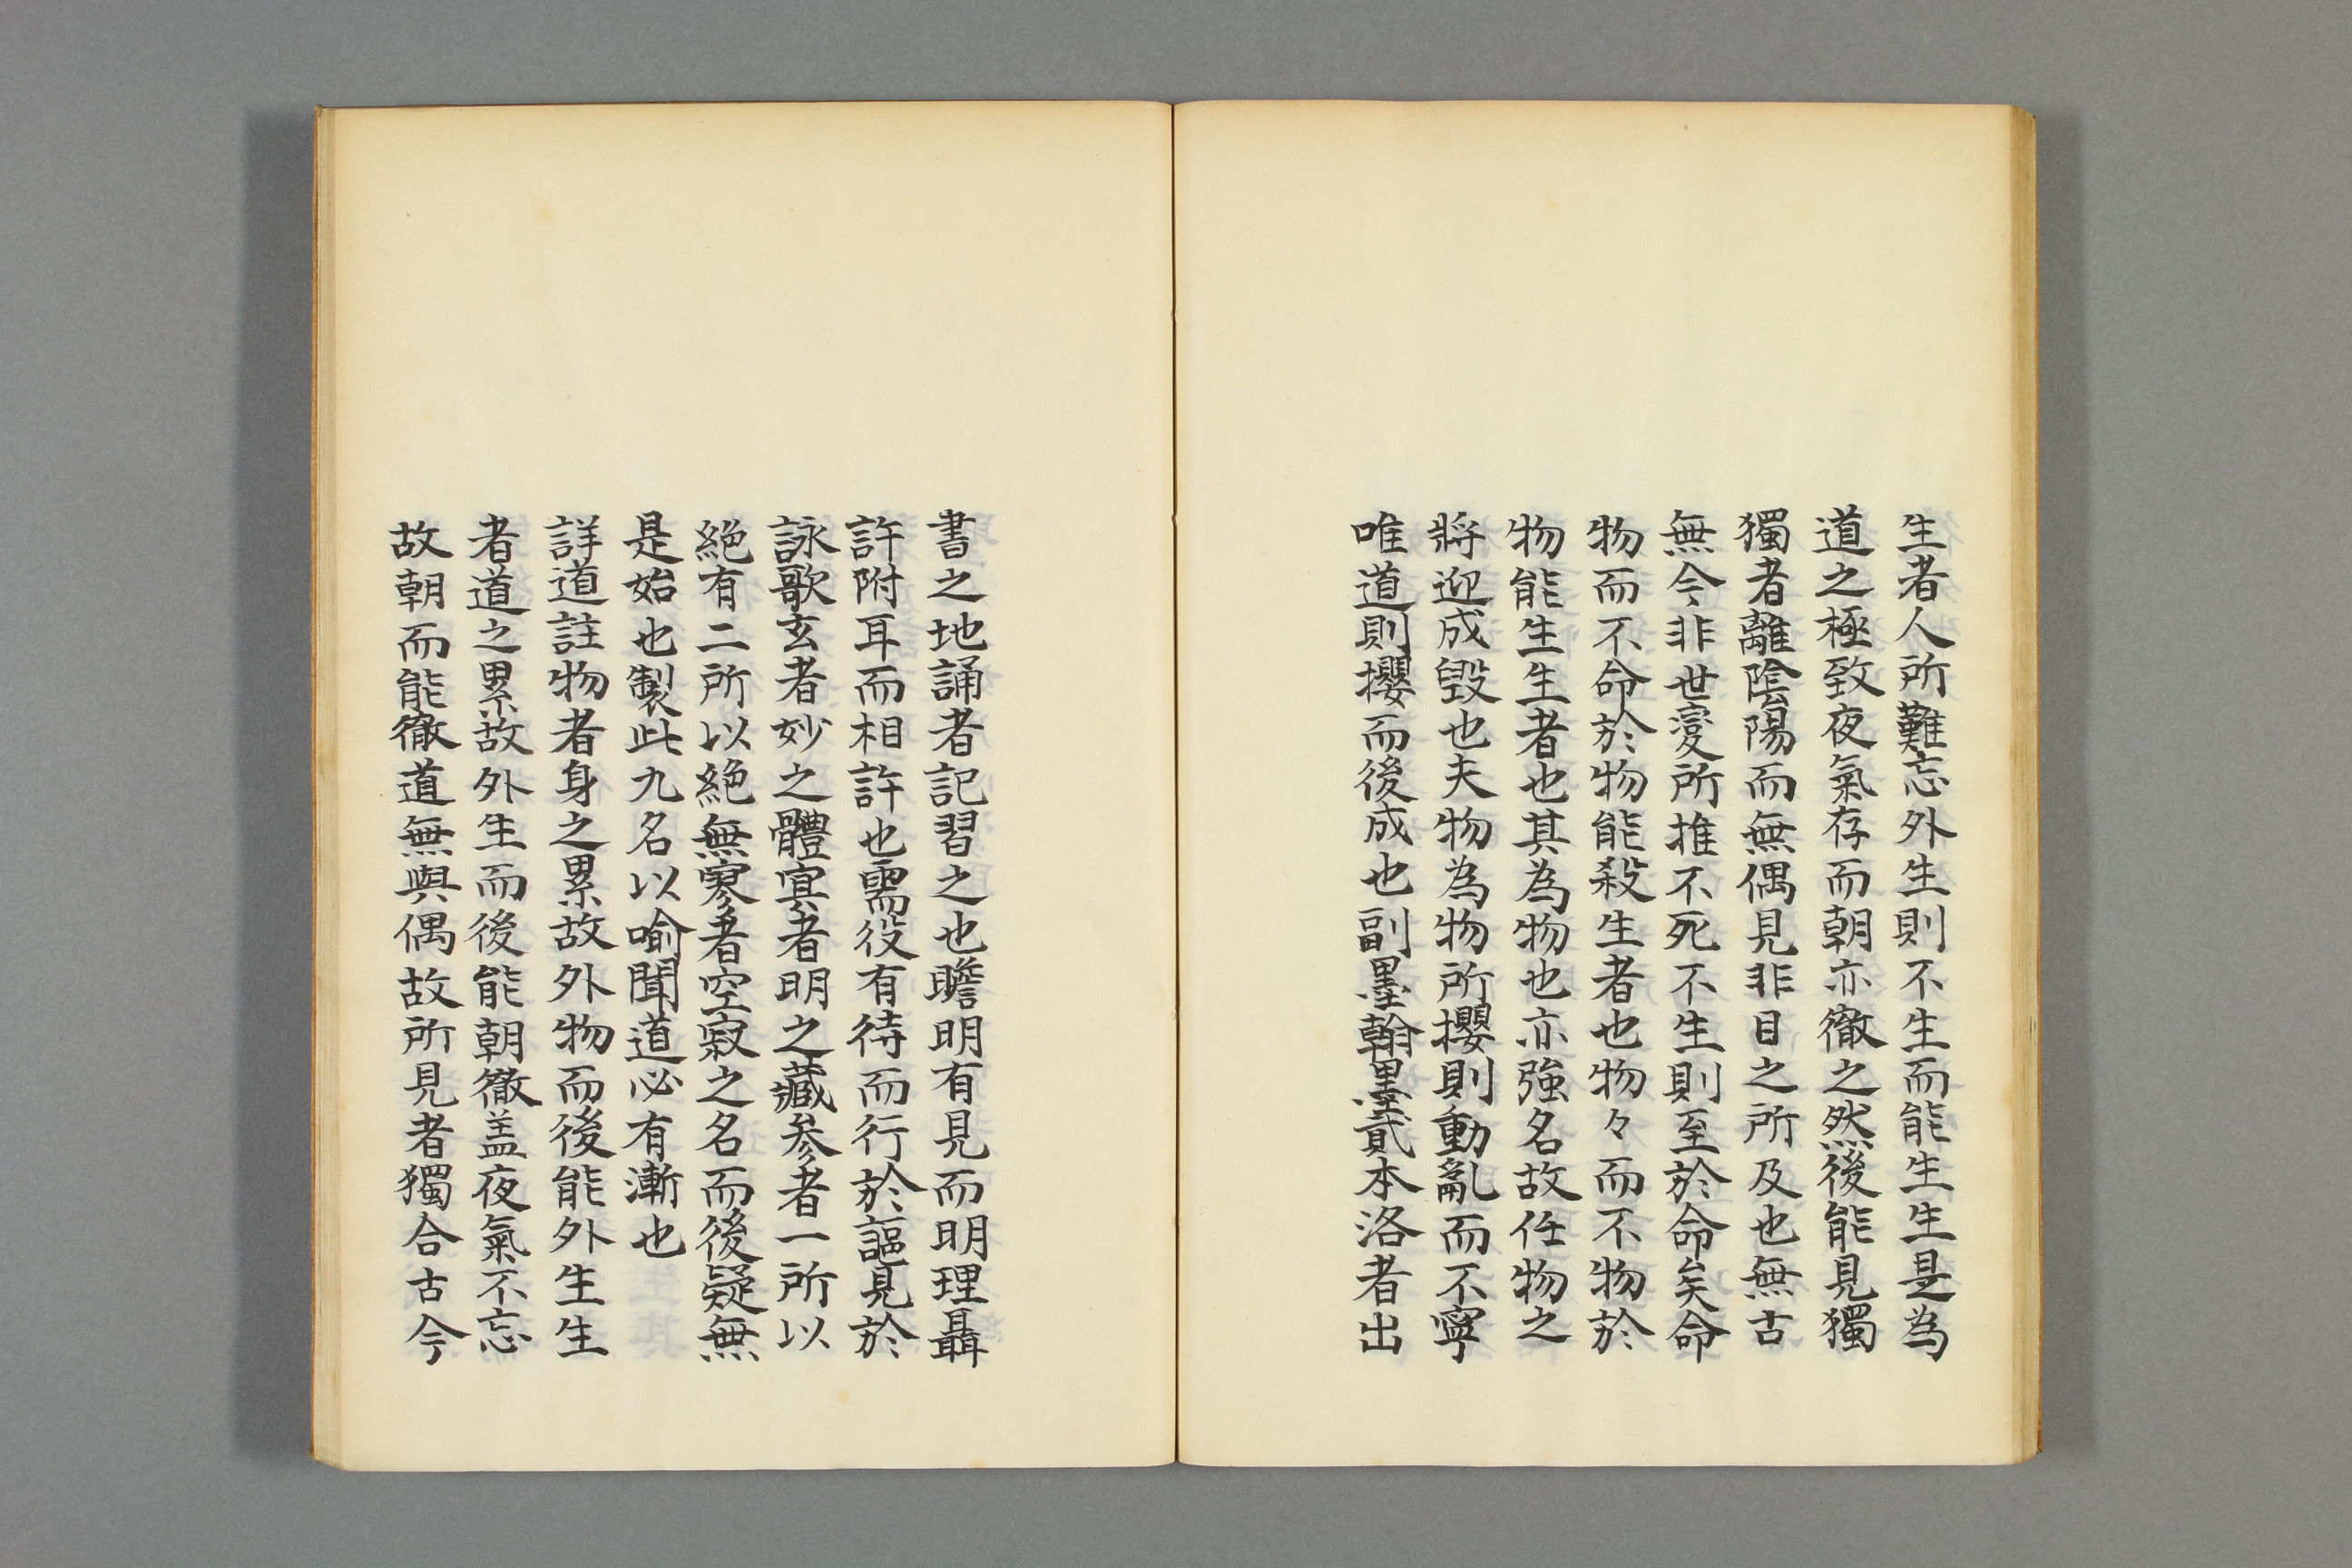 生者人所難忘外生則不生而能生生是為
道之極致夜氣存而朝亦徹之然後能見獨
獨者離陰陽而無偶見非目之所及也無古
無今非世変所推不死不生則至於命矣命
物而不命於物能殺生者也物々而不物於
物能生生者也其為物也亦強名故任物之
將迎成毀也夫物為物所攖則動亂而不寧
唯道則攖而後成也副墨翰墨貳本洛者出
書之地誦者記習之也瞻明有見而明理聶
許附耳而相許也需役有待而行於謳見於
詠歌玄者妙之體冥者明之藏参者一所以
絕有二所以絕無寥者空寂之名而後疑無
是始也製此九名以喻聞道必有漸也
詳道註物者身之累故外物而後能外生生
者道之累故外生而後能朝徹盖夜氣不忘
故朝而能徹道無與偶故所見者獨合古今